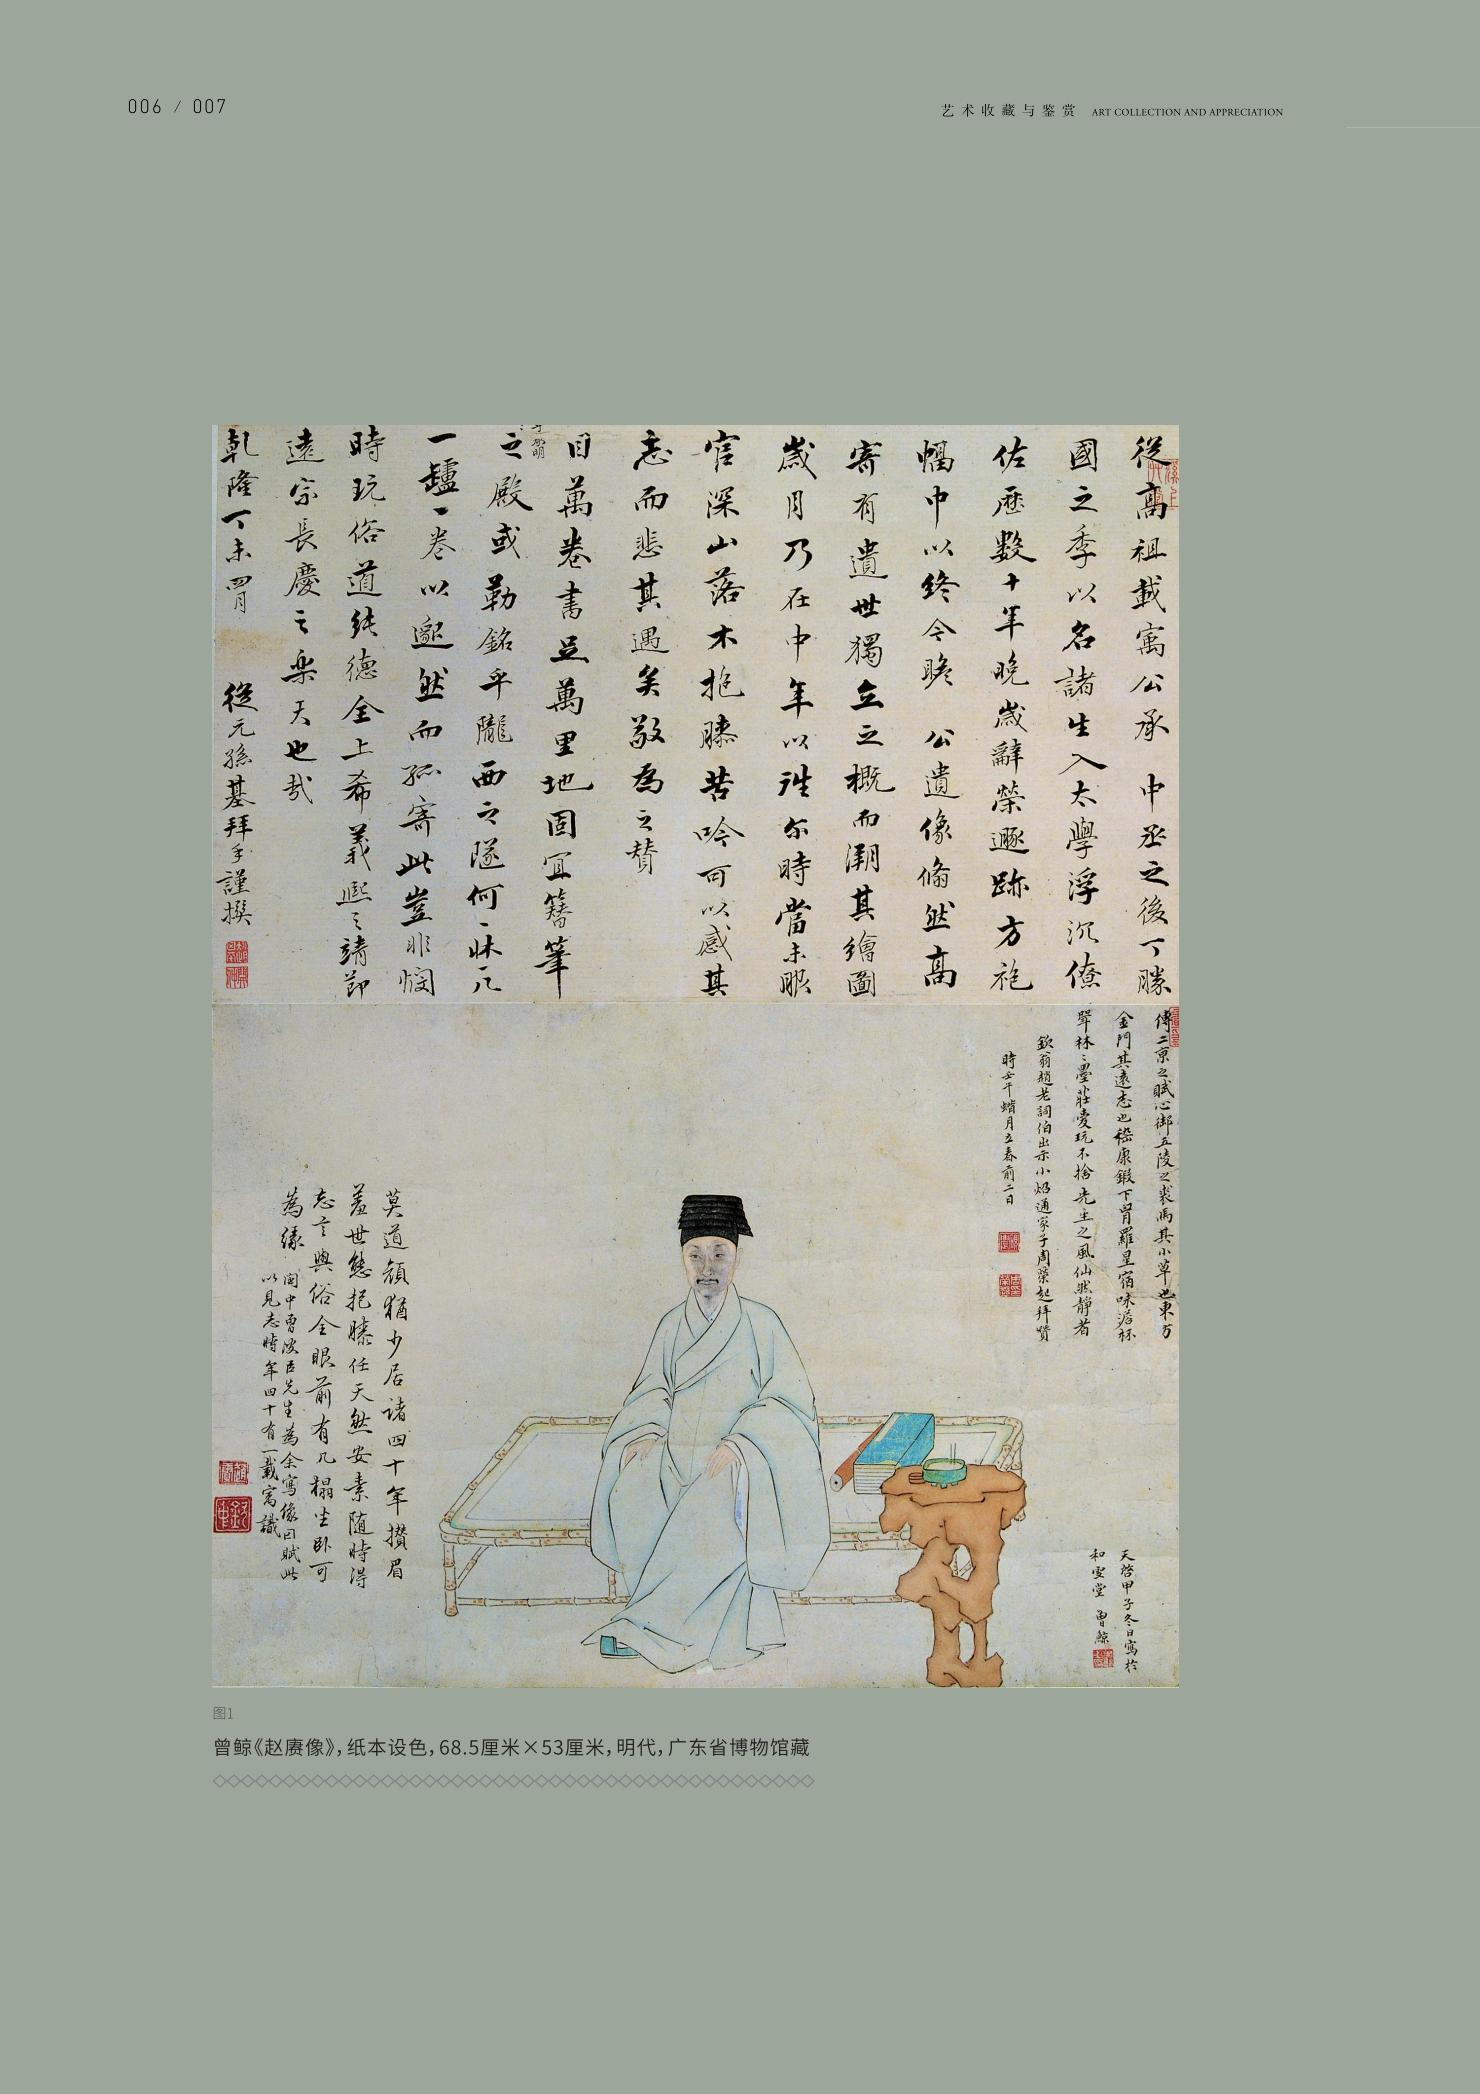 006 / 007
艺术收藏与鉴赏 ART COLLECTION AND APPRECIATION
從高祖載寓公承 中丞之後丁勝
國之季以名諸生入太學浮沉僚
佐歷數十年晚歲辭榮遯跡方袍
幅中以終今瞻 公遺像翛然高
寄有遺世獨立之概而溯其繪圖
歲月乃在中年以往尔時當未眼
官深山落木抱膝苦吟可以感其
志而悲其遇矣敬為之賛
目萬卷書足萬里地固宜簪筆
之殿或勒銘乎隴西之隧何止
一罏一卷以邈然而孤寄此豈非憫
時玩俗道純德全上希義熙之靖節
遠宗長慶之樂天也哉
乾隆丁未四月 從元孫基拜手謹撰
傳二京之賦心御五陵之裘馬其小草也東方
金門其遠志也嵇康鍛下胃羅星宿味澹林
壑愛玩不捨先生之風仙然靜者
欽翁趙老詞伯出示小炤通家子周榮起拜贊
時壬午蜡月立春前二日
莫道顏猶少居諸四十年攢眉
羞世態抱膝任天然安素随時得
忘言與俗全眼前有几榻坐卧可
為緣
閩中曾波臣先生為余寫像因賦此
以見志時年四十有一載寓識
天啓甲子冬日寫於
和雯堂 曾鯨
图1
曾鲸《赵赓像》,纸本设色,68.5厘米×53厘米,明代,广东省博物馆藏